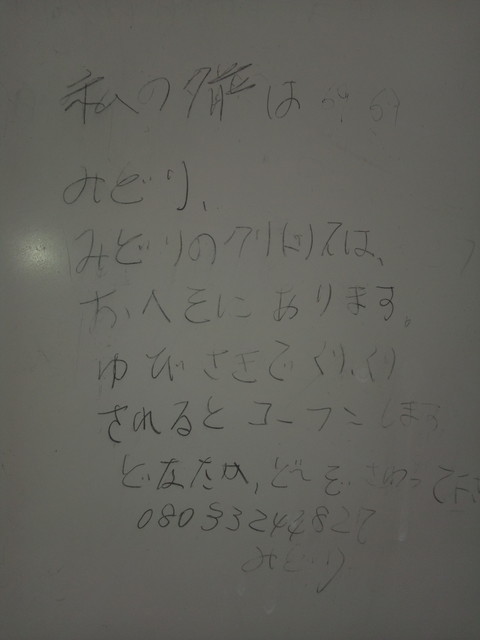 私の名前は
みどり、
みどりのクリトリスは、
おへそにあります。
ゆびさきでくりくり
されるとコーフンします
どなたか,どーぞさわって
みどり